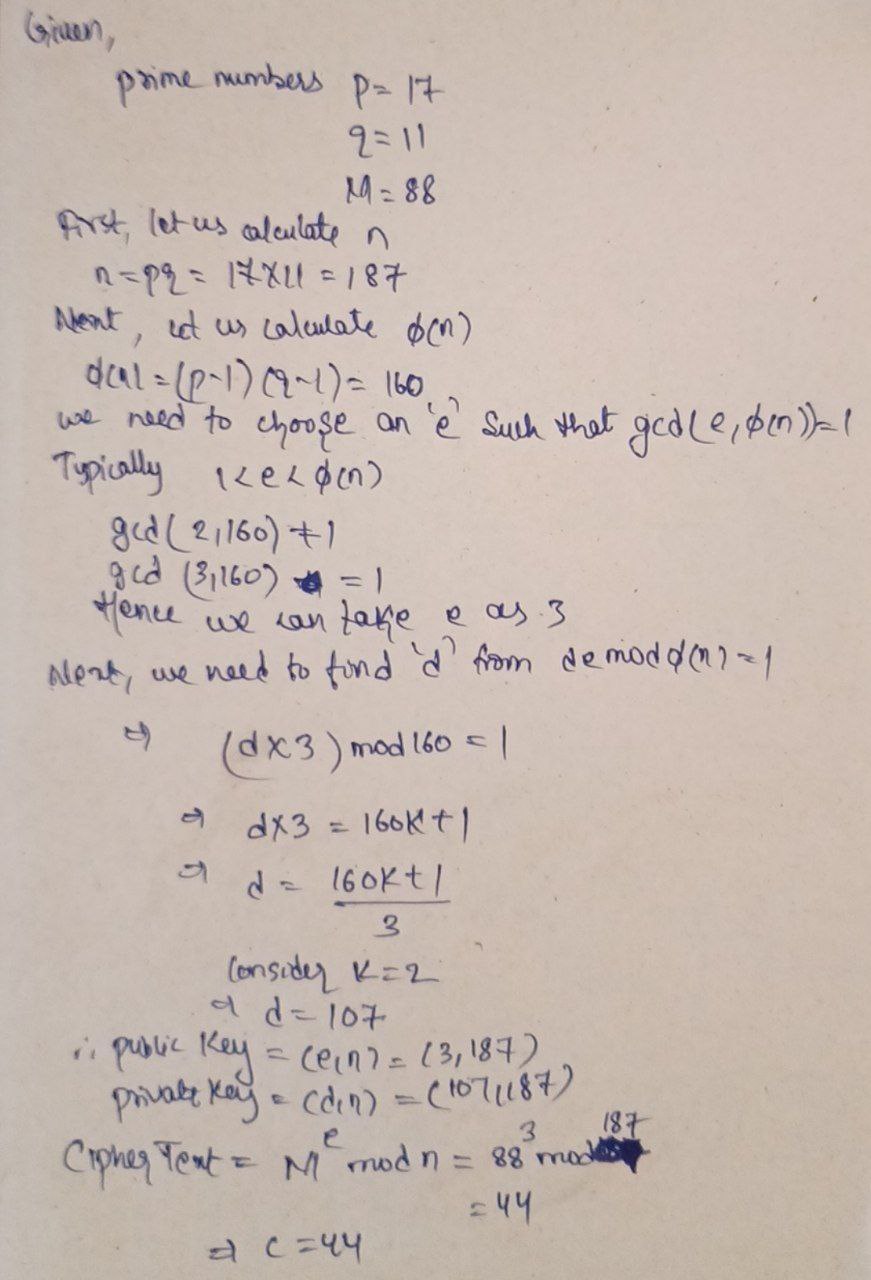 Given,
prime numbers p = 17
q = 11
M = 88
First, let us calculate n
n = pq = 17 X 11 = 187
Next, let us calculate ϕ(n)
ϕ(n) = (p-1) (q-1) = 160
we need to choose an 'e' such that gcd(e, ϕ(n)) = 1
Typically 1 < e < ϕ(n)
gcd (2, 160) ≠ 1
gcd (3, 160) = 1
Hence we can take e as 3
Next, we need to find 'd' from de mod ϕ(n) = 1
⇒ (d X 3) mod 160 = 1
⇒ d X 3 = 160K + 1
⇒ d = 160K + 1 / 3
Consider K = 2
⇒ d = 107
∴ public Key = (e, n) = (3, 187)
private Key = (d, n) = (107, 187)
Cipher Text = M^e mod n = 88^3 mod 187
= 44
⇒ C = 44